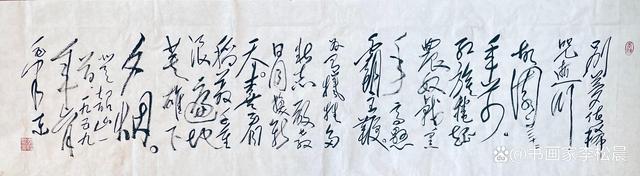 別夢依稀
咒逝川
故園三十二
年前。
红旗捲起
農奴戟黑
手高懸
霸主鞭。
為有犧牲多
壯志敢教
日月換新
天。喜看
稻菽千重
浪遍地
英雄下
夕烟。
登韶山一
首一九五九
年六月
毛泽东
书画家李松晨